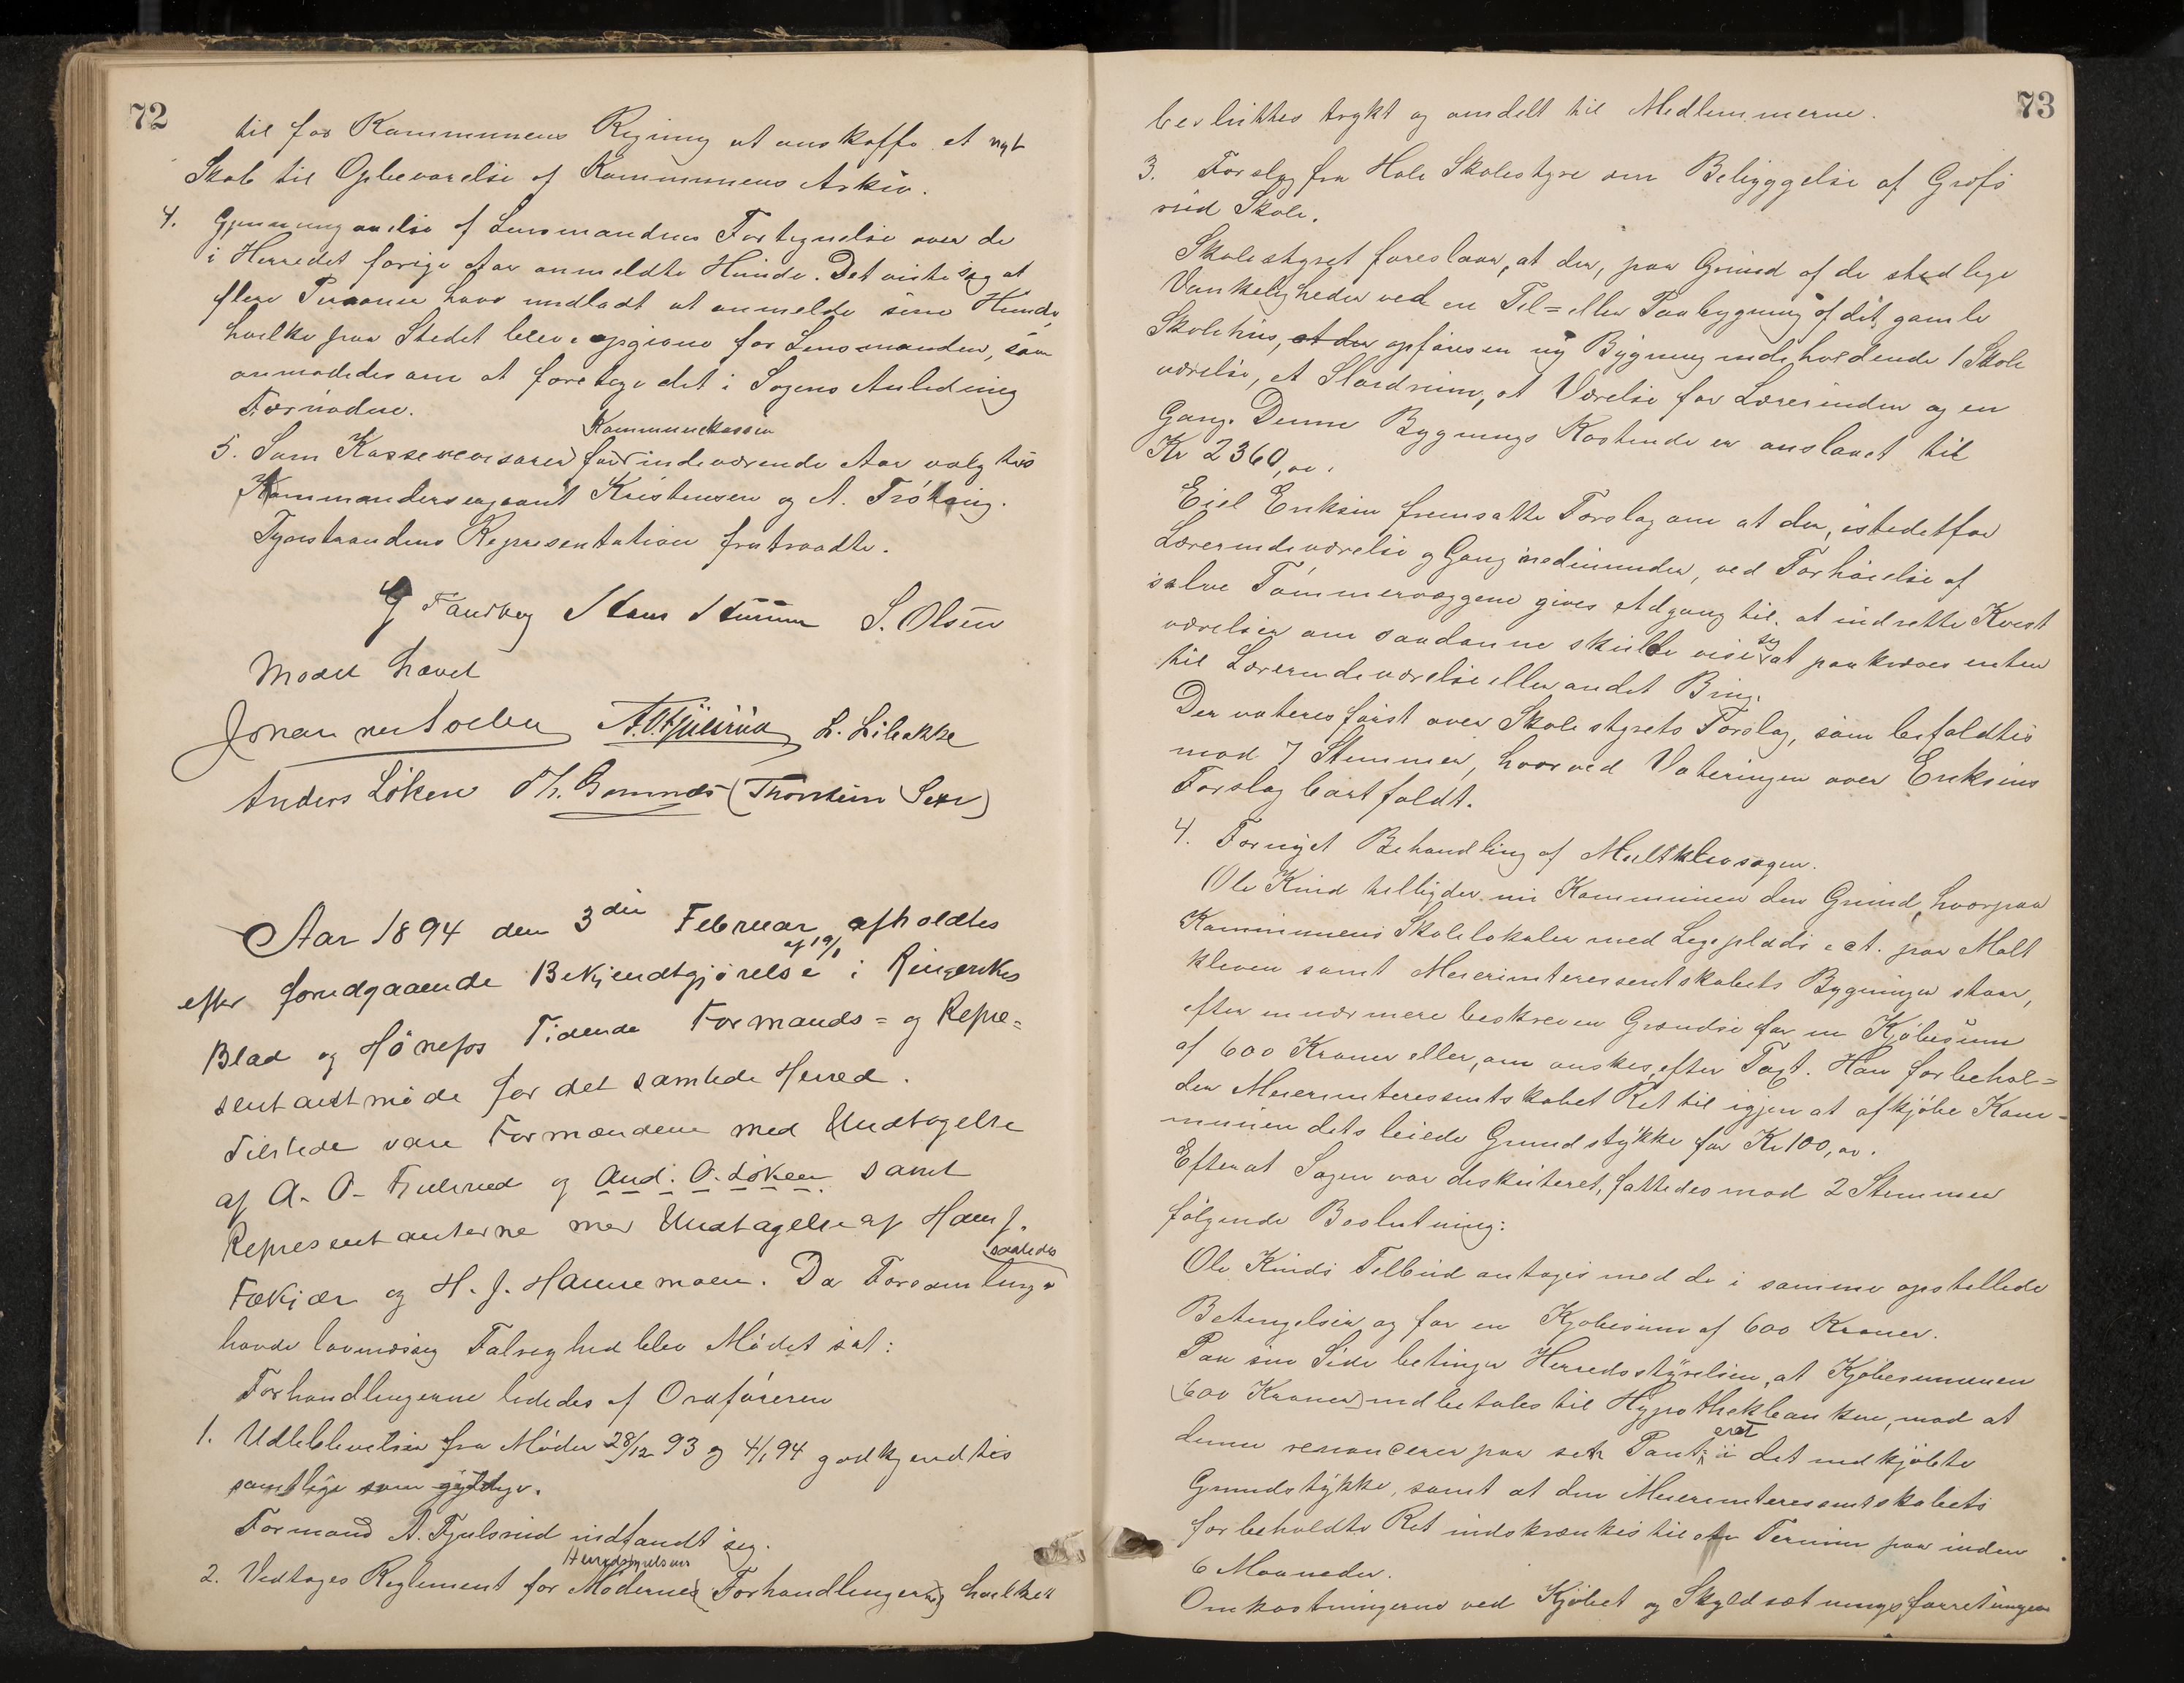 72
til for Kommunens Regning at anskaffe et nyt
Skab til Opbevarelse af Kommunens Arkiv.
4. Gjennemgaaelse af Lensmandens Fortegnelse over de
i Herredet forige Aar anmeldte Hunde. Det viste sig at
flere Personer havde undladt at anmelde sine Hunde,
hvilke paa Stedet blev opgivne for Lensmanden, som
anmodedes om at foretage det i Sagens Anledning
Fornødne.
5. Som Kasserevisorer for Kommunekassen indeværende Aar valgtes
Kommandersergeant Kristensen og A. Frøhaug.
Tyristrandens Representation fratraadte.
G Fandberg S. Olsen
Mødet hævet
Johan A. O. Fjulsrud L. Libakke
Anders Löken Th. Gomnæs (Thorstein Sexe)
Aar 1894 den 3die Februar afholdtes
efter forudgaaende Bekjendtgjørelse af 19/1 i Ringerikes
Blad og Hönefos Tidende Formands= og Repre=
sentantmøde for det samlede Herred.
Tilstede vare Formændene med Undtagelse
af A. O. Fjulsrud og And. O. Löken samt
Representanterne med Undtagelse af Hans J.
Fækjær og H. J. Hannemoen. Da Forsamlingen saaledes
havde lovmæssig Talrighed blev Mødet sat:
Forhandlingerne lededes af Ordføreren
1. Udskrivelser fra Møder 28/12 93 og 4/1 94 godkjendtes
samtlige som gyldige.
Formand A. Fjulsrud indfandt sig.
2. Vedtoges Reglement for Herredsstyrelsens Møderne (Forhandlingerne) hvilket
73
besluttes trykt og omdelt til Medlemmerne.
3. Forslag fra Hole Skolestyre om Bebyggelse af Grøfs
rud Skole.
Skolestyret foreslaar, at der, paa Grund af de stedlige
Vanskeligheder ved en Til= eller Paabygning af det gamle
Skolehus, at der opføres en ny Bygning indeholdende 1 Skole
værelse, et Sløidrum, et Værelse for Lærerinden og en
Gang. Denne Bygnings Kostende er anslaaet til
Kr 2360,00.
Eiel Eriksen fremsatte Forslag om at der, istedetfor
Lærerindeværelse og Gang nedenunder, ved Forhøielse af
selve Tømmervæggene gives Adgang til at indrette Kvist
værelser om saadanne skulde vise sig at paakræves enten
til Lærerindeværelse eller andet Brug.
Der voteres først over Skolestyrets Forslag, som bifaldtes
mod 7 Stemmer, hvorved Voteringen over Eriksens
Forslag bortfaldt.
4. Fornyet Behandling af Maltklevsagen.
Ole Kind tilbyder nu Kommunen den Grund, hvorpaa
Kommunens Skolelokaler med Legeplads ect. paa Malt
kleven samt Meieriinteressentskabets Bygninger staar,
efter en nærmere beskreven Grændse for en Kjøbesum
af 600 Kroner eller, om ønskes, efter Taxt. Han forbehol=
der Meieriinteressentskabet Ret til igjen at afkjøbe Kom=
munen dets leiede Grundstykke for Kr 100,00.
Efterat Sagen var diskuteret, fattedes mod 2 Stemmer
følgende Beslutning:
Ole Kinds Tilbud antages med de i samme opstillede
Betingelser og for en Kjøbesum af 600 Kroner.
Paa sin Side betinger Herredsstyrelsen, at Kjøbesummen
(600 Kroner) indbetales til Hypothekbanken, mod at
denne renoncerer paa sin Panteret i det indkjøbte
Grundstykke, samt at den Meieriinteressentskabets
forbeholdte Ret indskrænkes til en Termin paa inden
6 Maaneder.
Omkostningerne ved Kjøbet og Skyldsætningsforretningen